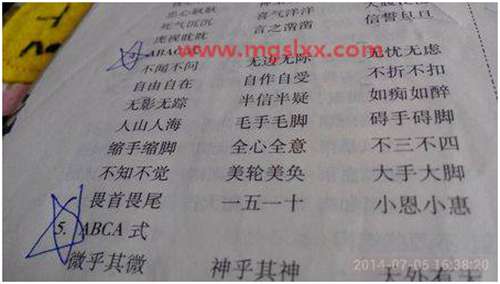 死气沉沉 喜气洋洋
虎视眈眈 言之凿凿 信誓旦旦
ABAC
www.mgslxx.com
不闻不问 无边无际 无忧无虑
自由自在 自作自受 不折不扣
无影无踪 半信半疑 如痴如醉
人山人海 毛手毛脚 碍手碍脚
缩手缩脚 全心全意 不三不四
不知不觉 美轮美奂 大手大脚
畏首畏尾 一五一十 小恩小惠
5. ABCA 式
微乎其微 神乎其神 天外有天
2014-07-05 16:38:20